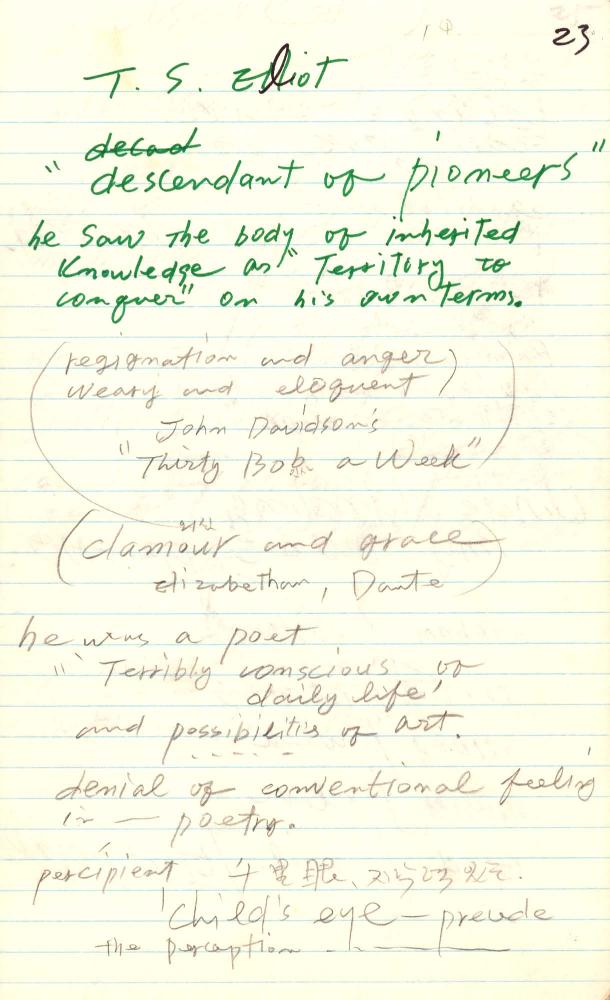 23
T. S. Elliot
decad
"descendant of pioneers"
he saw the body of inherited
Knowledge as "Territory to
conquer" on his own Terms.
(resignation and anger)
weary and eloquent)
John Davidson's
"Thirty Bob a Week"
(clamour and grace)
Elizabethan, Dante
he was a poet
"Terribly conscious of
daily life'
and possibilities of art.
denial of conventional feeling
in — poetry.
percipient
'Child's eye — preude
the perception